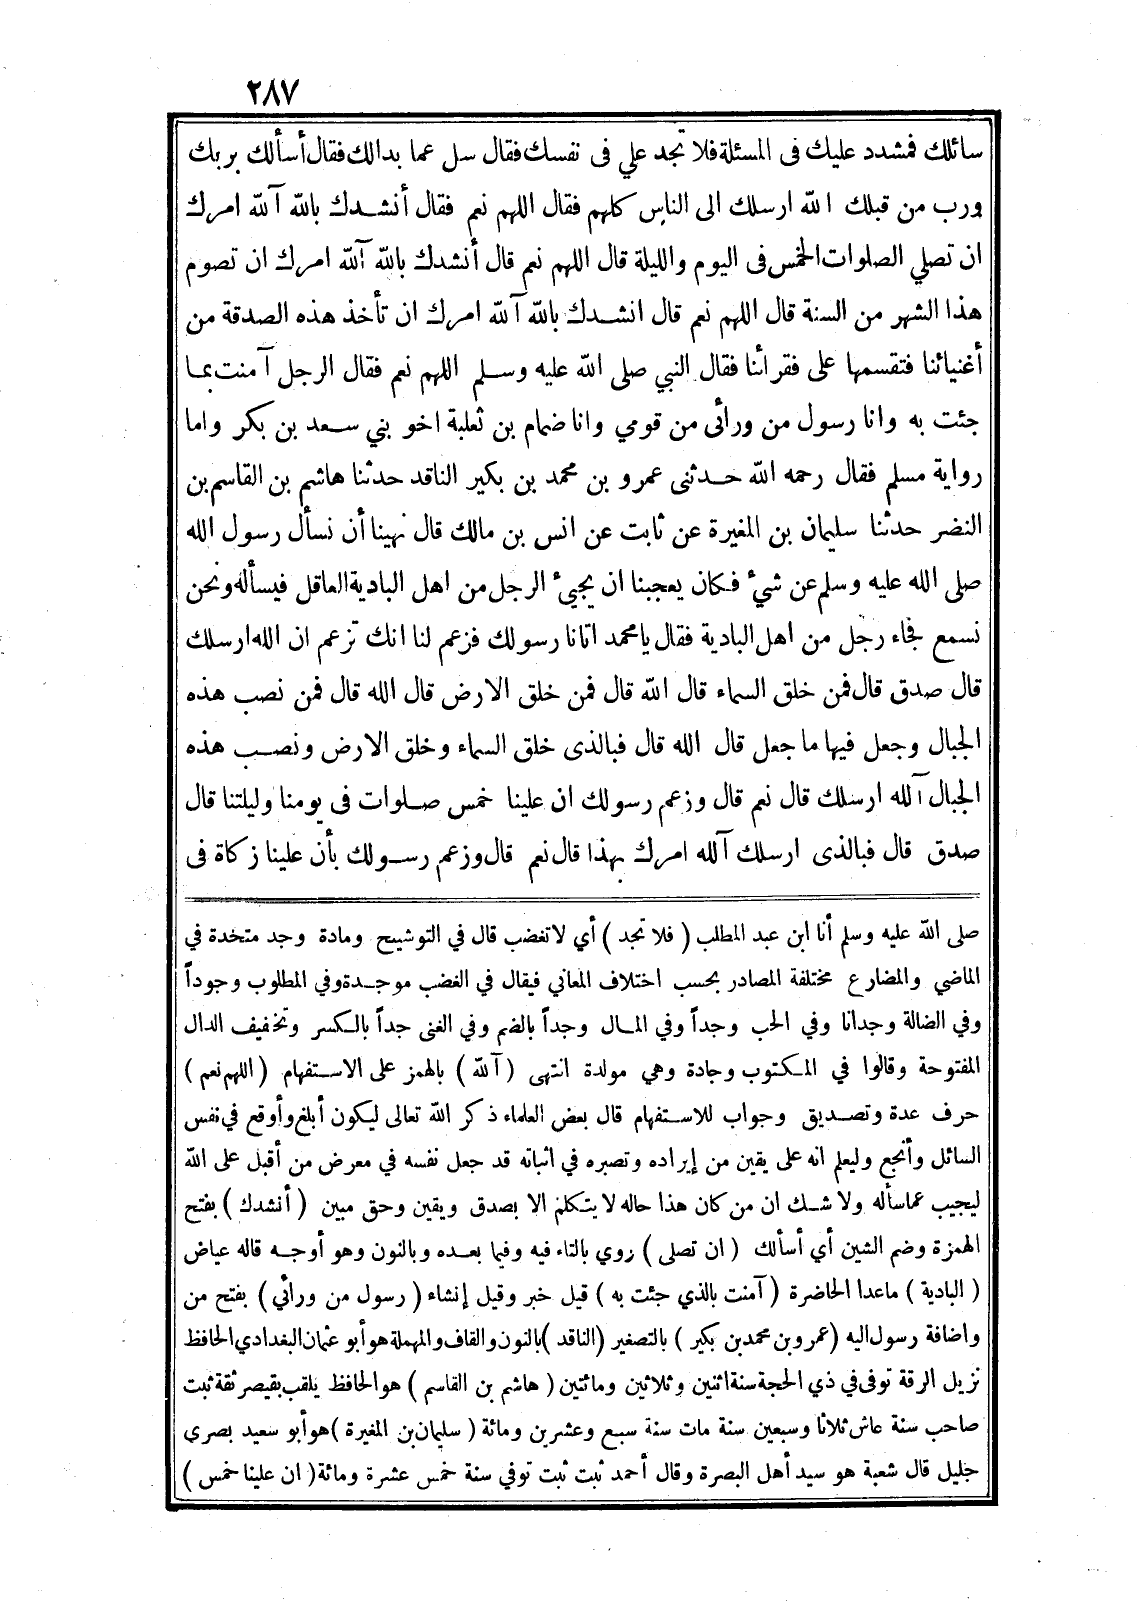 ٢٨٧
سائلك فمشدد عليك فى المسئلة فلا تجد علي فى نفسك فقال سل عما بدالك فقال أسألك بربك
ورب من قبلك الله ارسلك الى الناس كلهم فقال اللهم نعم فقال أنشدك بالله آلله امرك
ان تصلي الصلوات الخمس فى اليوم والليلة قال اللهم نعم قال أنشدك بالله آلله امرك ان تصوم
هذا الشهر من السنة قال اللهم نعم قال انشدك بالله آلله امرك ان تأخذ هذه الصدقة من
أغنيائنا فتقسمها على فقرائنا فقال النبي صلى الله عليه وسلم اللهم نعم فقال الرجل آمنت بما
جئت به وانا رسول من ورائى من قومي وانا ضمام بن ثعلبة اخو بني سعد بن بكر واما
رواية مسلم فقال رحمه الله حدثنى عمرو بن محمد بن بكير الناقد حدثنا هاشم بن القاسم بن
النضر حدثنا سليمان بن المغيرة عن ثابت عن انس بن مالك قال نهينا أن نسأل رسول الله
صلى الله عليه وسلم عن شىء فكان يعجبنا ان يجيىء الرجل من اهل البادية العاقل فيسأله ونحن
نسمع فجاء رجل من اهل البادية فقال يا محمد اتانا رسولك فزعم لنا انك تزعم ان الله ارسلك
قال صدق قال فمن خلق السماء قال الله قال فمن خلق الارض قال الله قال فمن نصب هذه
الجبال وجعل فيها ما جعل قال الله قال فبالذى خلق السماء وخلق الارض ونصب هذه
الجبال آلله ارسلك قال نعم قال وزعم رسولك ان علينا خمس صلوات فى يومنا وليلتنا قال
صدق قال فبالذى ارسلك آلله امرك بهذا قال نعم قال وزعم رسولك بأن علينا زكاة فى
صلى الله عليه وسلم أنا ابن عبد المطلب ( فلا تجد ) أي لا تغضب قال في التوشيح ومادة وجد متحدة في
الماضي والمضارع مختلفة المصادر بحسب اختلاف المعاني فيقال في الغضب موجدة وفي المطلوب وجوداً
وفي الضالة وجدانا وفي الحب وجداً وفي المال وجداً بالضم وفي الغنى جداً بالكسر وتخفيف الدال
المفتوحة وقالوا في المكتوب وجادة وهي مولدة انتهى ( آلله ) بالهمز على الاستفهام ( اللهم نعم )
حرف عدة وتصديق وجواب للاستفهام قال بعض العلماء ذكر الله تعالى ليكون أبلغ وأوقع في نفس
السائل وأنجع وليعلم انه على يقين من إيراده وتصبره في اثباته قد جعل نفسه في معرض من أقبل على الله
ليجيب عما سأله ولا شك ان من كان هذا حاله لا يتكلم الا بصدق ويقين وحق مبين ( أنشدك ) بفتح
الهمزة وضم الشين أي أسألك ( ان تصلى ) روي بالتاء فيه وفيما بعده وبالنون وهو أوجه قاله عياض
( البادية ) ماعدا الحاضرة ( آمنت بالذي جئت به ) قيل خبر وقيل إنشاء ( رسول من ورائي ) بفتح من
واضافة رسول اليه ( عمرو بن محمد بن بكير ) بالتصغير ( الناقد ) بالنون والقاف والمهملة هو أبو عثمان البغدادي الحافظ
نزيل الرقة توفى في ذي الحجة سنة اثنين وثلاثين ومائتين ( هاشم بن القاسم ) هو الحافظ يلقب بقيصر ثقة ثبت
صاحب سنة عاش ثلاثا وسبعين سنة مات سنة سبع وعشرين ومائة ( سليمان بن المغيرة ) هو أبو سعيد بصري
جليل قال شعبة هو سيد أهل البصرة وقال أحمد ثبت ثبت توفي سنة خمس عشرة ومائة ( ان علينا خمس )